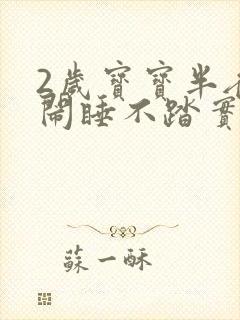 2歲寶寶半
鬧睡不踏實
蘇一酥